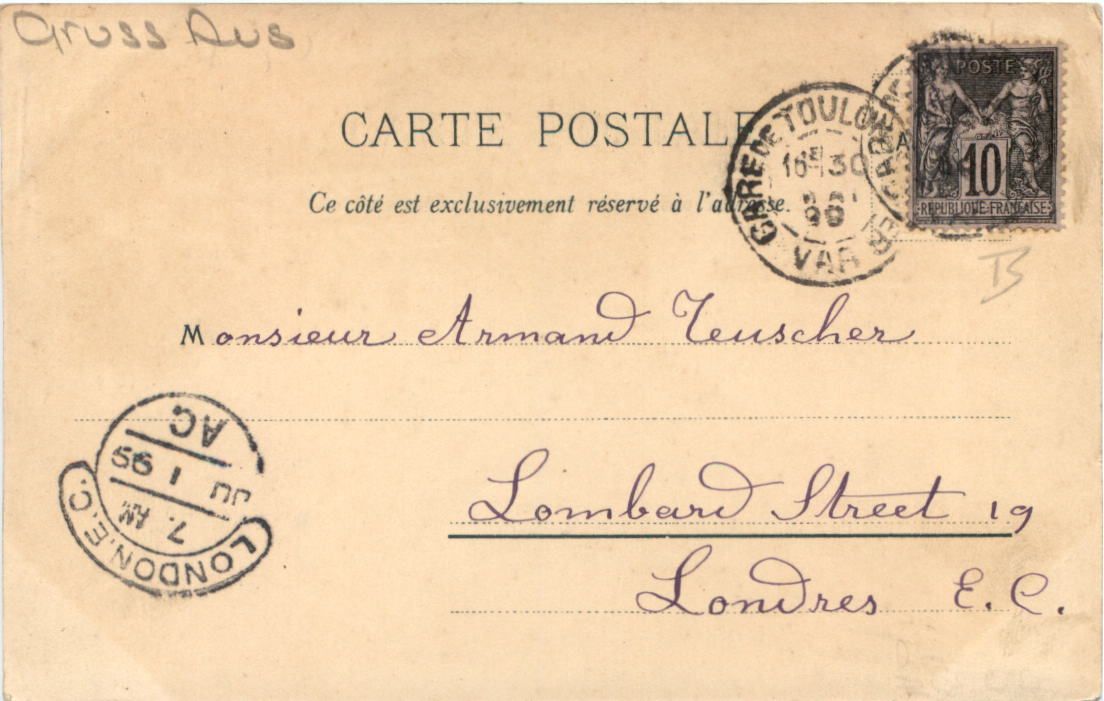 Gruss Aus
CARTE POSTALE
Ce côté est exclusivement réservé à l'adresse.
GARE DE TOULON
16 30
VAR
POSTE
10
REPUBLIQUE FRANÇAISE
B
Monsieur Armand Teuscher
AC
JU 1 99
7. AM
LONDON.E.C.
Lombard Street 19
Londres E. C.